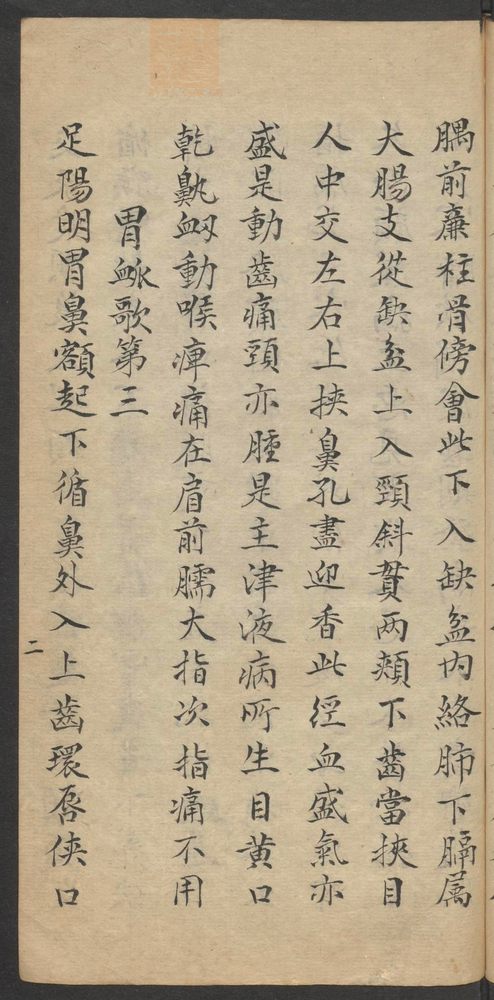 髃前廉柱骨傍會此下入缺盆内絡肺下膈属
大腸支從缺盆上入頸斜貫两頰下齒當挾目
人中交左右上挾鼻孔盡迎香此經血盛氣亦
盛是動齒痛頸亦腫是主津液病所生目黄口
乾鼽衂動喉痺痛在肩前臑大指次指痛不用
胃衇歌第三
足陽明胃鼻額起下循鼻外入上齒環唇俠口
二